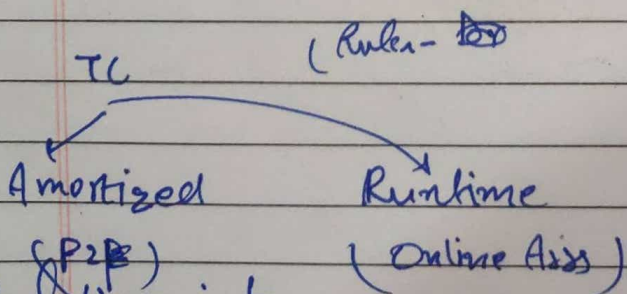 (Ruler-
TC
Amortized Runtime
(P2P) (Online Airs)